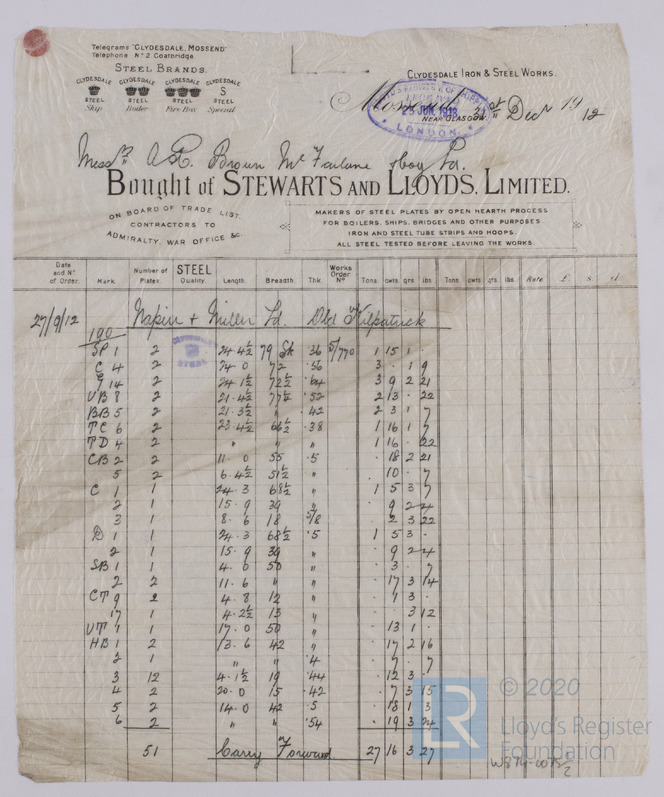 Telegrams "CLYDESDALE, MOSSEND"
Telephone No 2 Coatbridge
STEEL BRANDS.
CLYDESDALE CLYDESDALE CLYDESDALE CLYDESDALE
S
STEEL STEEL STEEL STEEL
Ship Boiler Fire Box Special
CLYDESDALE IRON & STEEL WORKS.
Mossend 31st Decr 1912
NEAR GLASGOW
LONDON
Messrs A. R. Brown McFarlane & Coy Ld.
Bought of STEWARTS AND LLOYDS, LIMITED.
ON BOARD OF TRADE LIST.
CONTRACTORS TO
ADMIRALTY, WAR OFFICE &c.
MAKERS OF STEEL PLATES BY OPEN HEARTH PROCESS
FOR BOILERS, SHIPS, BRIDGES AND OTHER PURPOSES
IRON AND STEEL TUBE STRIPS AND HOOPS.
ALL STEEL TESTED BEFORE LEAVING THE WORKS.
Date and No of Order. Mark. Number of Plates STEEL Quality. Length. Breadth. Thk Works Order No Tons cwts qrs lbs Tons cwts qrs lbs. Rate £ s d
27/9/12 Napier & Miller Ld. Old Kilpatrick
190
CLYDESDALE STEEL
SP 1 2 24.4½ 79 Sk .36 5/770 1 15 1 .
C 4 2 24 0 72 .56 3 . 1 9
14 2 24.1½ 72½ .64 3 9 2 21
UB 8 2 21.4½ 77½ .52 2 13 . 22
BB 5 2 21.3½ " .42 2 3 1 7
TC 6 2 23.4½ 66½ .38 1 16 1 7
TD 4 2 " " " 1 16 . 22
CB 2 2 11.0 55 .5 18 2 21
5 2 6.4½ 51½ " 10 . 7
C 1 1 24.3 68½ " 1 5 3 7
2 1 15.9 39 " 9 2 24
3 1 8.6 18 5/8 2 3 22
D 1 1 24.3 68½ .5 1 5 3 .
2 1 15.9 39 " 9 2 24
SB 1 1 4.0 50 " 3 . 7
2 2 11.6 " " 17 3 14
CT 9 2 4.8 12 " 1 3 .
17 1 4.2½ 13 " 3 12
UT 1 1 17.0 50 " 13 1 .
HB 1 2 13.6 42 " 17 2 16
2 1 " " .4 7 . 7
3 12 4.1½ 19 .44 12 3 .
4 2 20.0 15 .42 7 3 15
5 2 14.0 42 .5 18 1 3
6 2 " " .54 19 3 24
51 Carry Forward 27 16 3 27
LR © 2020
Lloyd's Register
Foundation